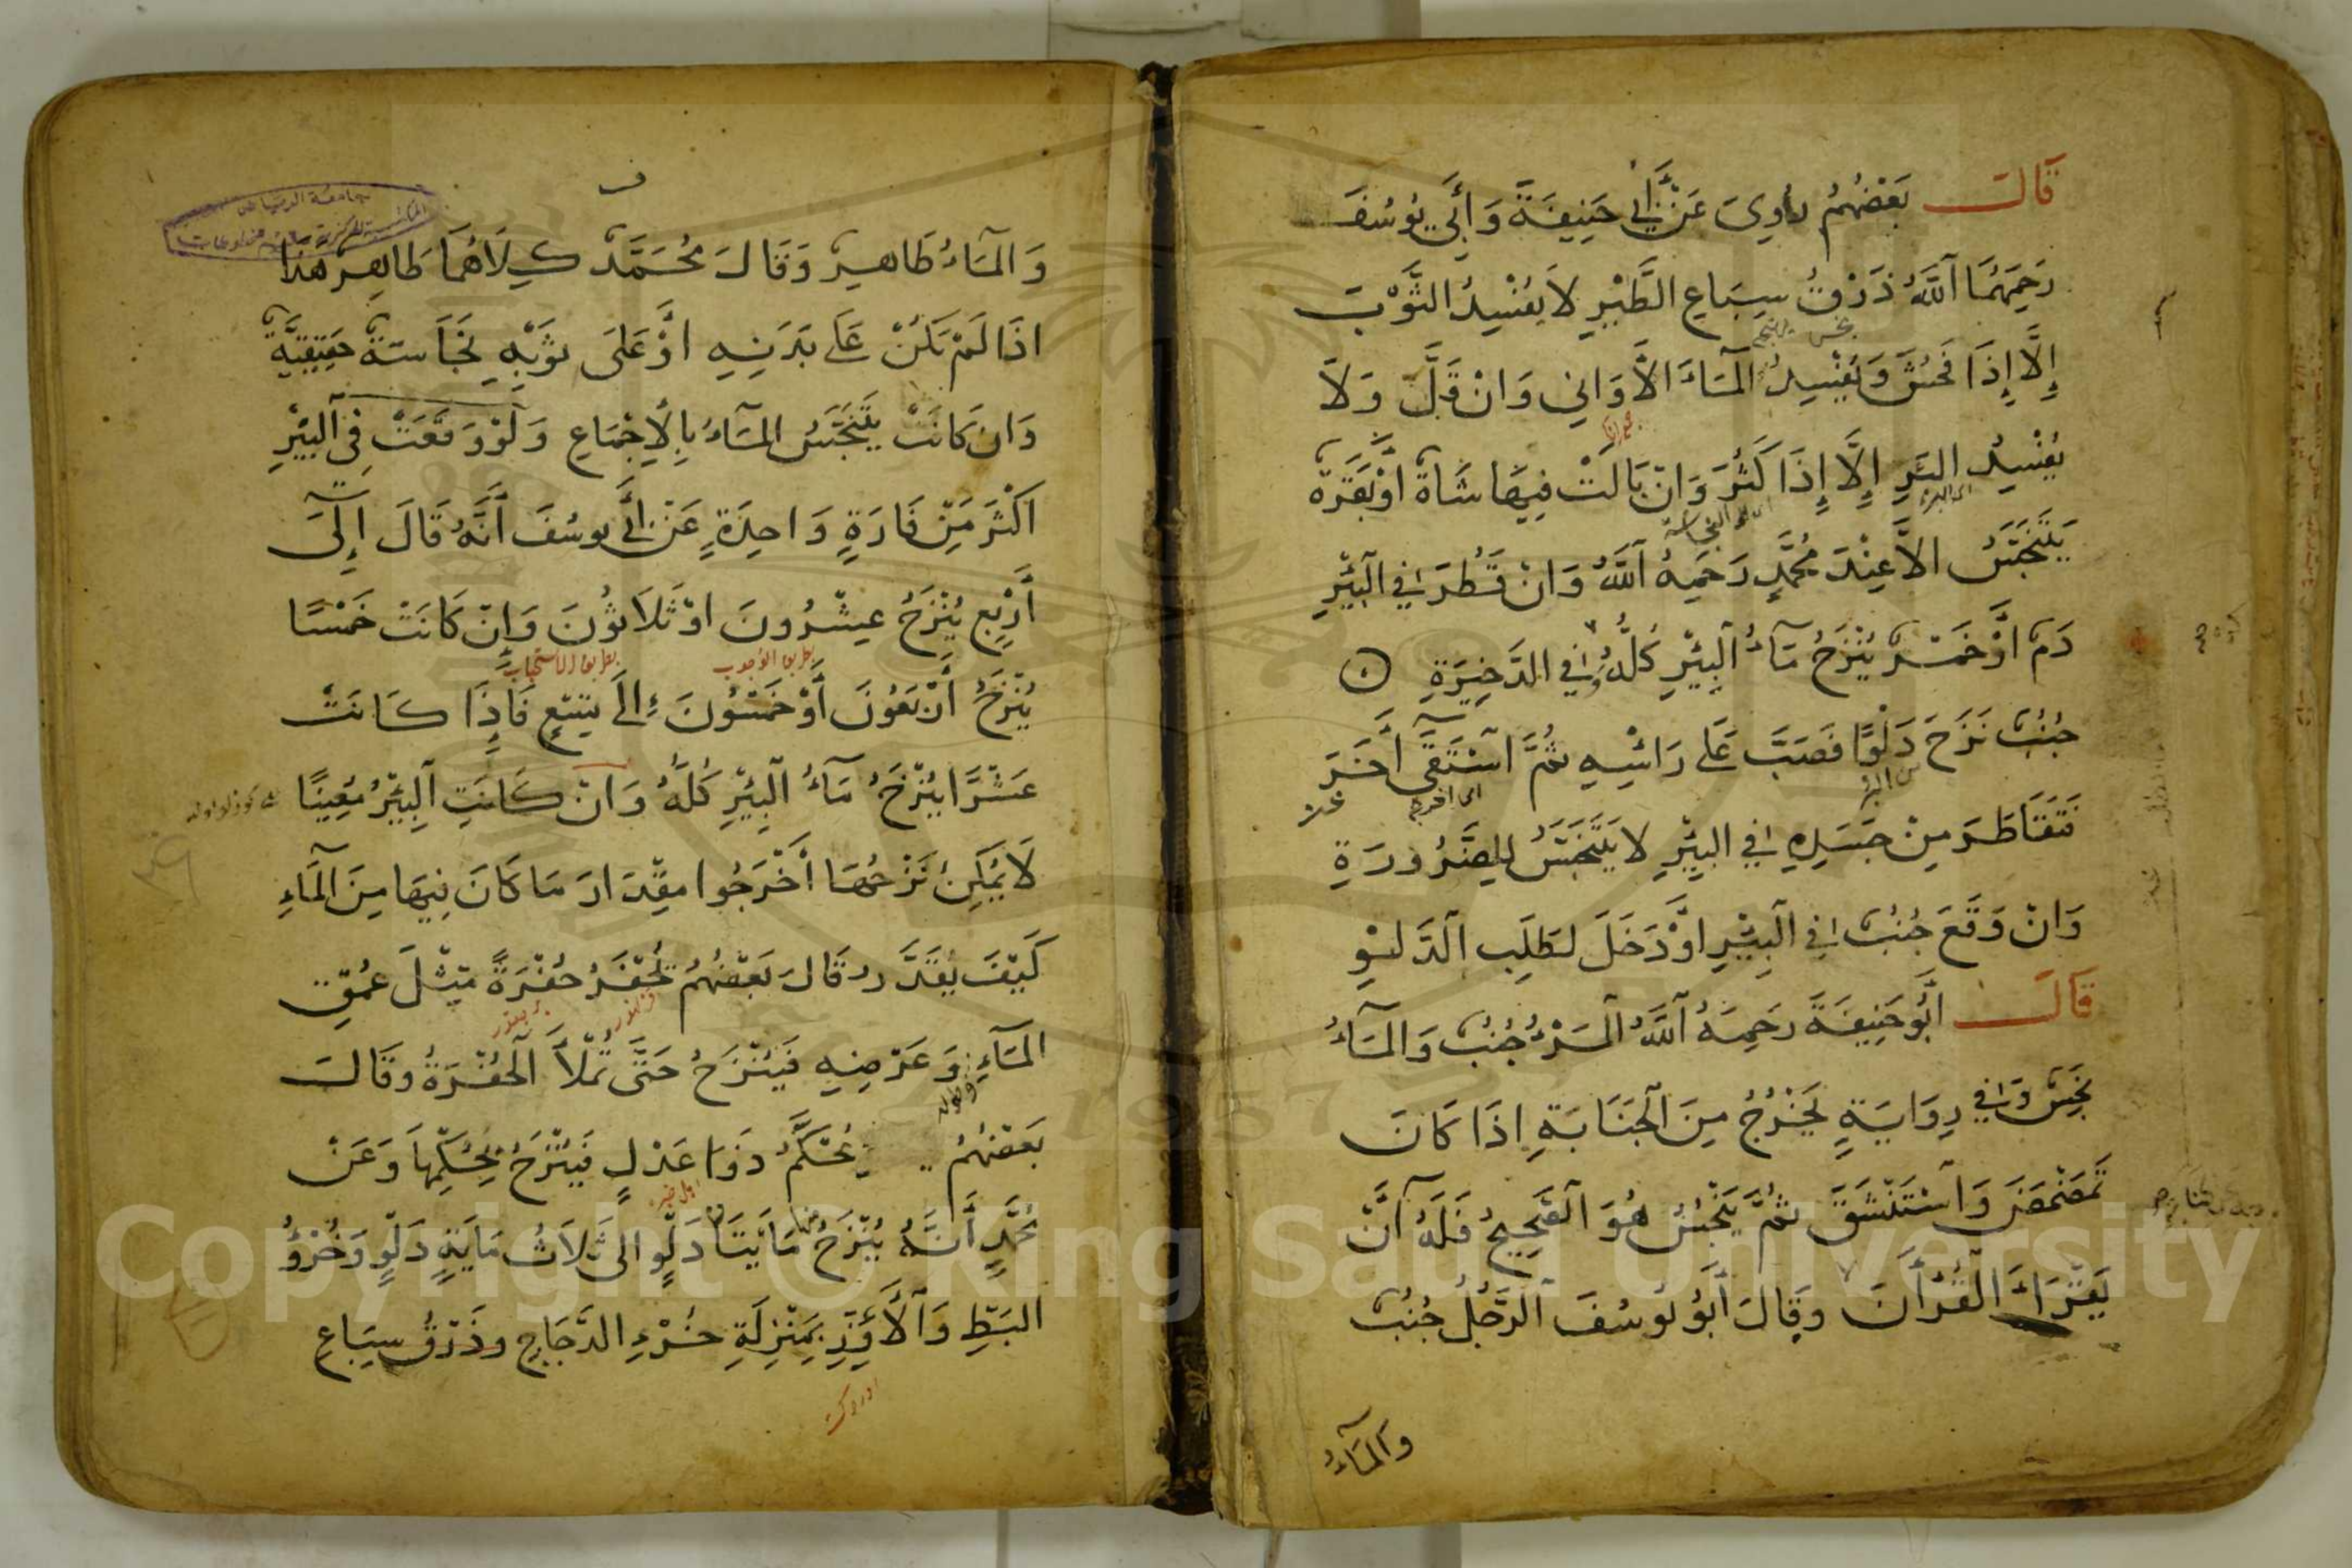 قَالَ بَعْضُهُمْ رُوِيَ عَنْ أَبِي حَنِيفَةَ وَأَبِي يُوسُفَ
رَحِمَهُمَا اللَّهُ ذَرْقُ سِبَاعِ الطَّيْرِ لَا يُفْسِدُ الثَّوْبَ
إِلَّا إِذَا فَحُشَ وَيُفْسِدُ الْمَاءَ الْأَوَانِي وَانْ قَلَّ وَلَا
يُفْسِدُ البئرِ إِلَّا إِذَا كَثُرَ وَانْ بَالَتْ فِيهَا شَاةٌ اَوْ بَقَرَةٌ
يَتَنَجَّسُ الَّا عِنْدَ مُحَمَّدٍ رَحِمَهُ اللَّهُ وَانْ قَطُرَ فِي الْبِئْرِ
دَمٌ اَوْ خَمْرٌ يُنْزَحُ مَاءُ الْبِئْرِ كُلُّهُ وَفِي الذَّخِيرَةِ
جُنُبٌ نَزَحَ دَلْوًا فَصَبَّ عَلَى رَأْسِهِ ثُمَّ اسْتَقَى أَخَرَ
فَتَقَاطَرَ مِنْ جَسَدِهِ فِي البِئْرِ لَا يَتَنَجَّسُ لِلضَّرُورَةِ
وَانْ وَقَعَ جُنُبٌ فِي الْبِئْرِ اَوْ دَخَلَ لطَلَبِ الدَّلْوِ
قَالَ أَبُو حَنِيفَةَ رَحِمَهُ اللَّهُ الْمَرْءُ جُنُبٌ وَالْمَاءُ
نَجِسٌ وَفِي رِوَايَةٍ يَخْرُجُ مِنَ الْجَنَابَةِ اِذَا كَانَ
تَمَضْمَضَ وَاسْتَنْشَقَ ثُمَّ يَنْجُسُ هُوَ الصَّحِيحُ فَلَهُ أَنْ
يَقْرَاءَ الْقُرْأَنَ وَقَالَ أَبُو يُوسُفَ الرَّجُلُ جُنُبٌ
وَالْمَاءُ
وَالْمَاءُ طَاهِرٌ وَقَالَ مُحَمَّدٌ كِلَاهُمَا طَاهِرٌ هَذَا
اذَا لَمْ يَكُنْ عَلَى بَدَنِهِ اوْ عَلَى ثَوْبِهِ نَجَاسَةٌ حَقِيقِيَّةٌ
وَان كَانَتْ يَتَنَجَّسُ الْمَاءُ بِالْاِجْمَاعِ وَلَوْ وَقَعَتْ فِي الْبِئْرِ
اَكْثَرَ مِنْ فَارَةٍ وَاحِدَةٍ عَنْ أَبِي يوسُفَ أَنَّهُ قَالَ إِلَى
أَرْبِعِ يُنْزَحُ عِشْرُونَ اوْ ثَلَاثُونَ وَإِنْ كَانَتْ خَمْسًا
بطريق الوجوب بطريق الاستحباب
يُنْزَحُ أَرْبَعُونَ أَوْ خَمْسُونَ إِلَى تِسْعٍ فَإِذَا كَانَتْ
عَشْرًا يُنْزَحُ مَاءُ الْبِئْرِ كُلُّهُ وَانْ كَانَتِ الْبِئْرُ مُعِينًا
لَا يُمْكِنُ نَزْحُهَا أَخْرَجُوا مِقْدَارَ مَا كَانَ فِيهَا مِنَ الْمَاءِ
كَيْفَ يُقَدَّرُ قَالَ بَعْضُهُمْ تُحْفَرُ حُفْرَةً مِثْلَ عُمْقِ
الْمَاءِ وَعَرْضِهِ فَيُنْزَحُ حَتَّى تُمْلَأَ الْحُفْرَةُ وَقَالَ
وطوله
بَعْضُهُمْ يُحَكَّمُ ذَوَا عَدْلٍ فَيُنْزَحُ بِحُكْمِهَا وَعَنْ
مُحَمَّدٍ أَنَّهُ يُنْزَحُ مِنْهَا مَايَتَا دَلْوٍ الى ثَلَاثُ مَايَةِ دَلْوٍ وَخُرْؤُ
الْبَطِّ وَالْأَوَزِّ بِمَنْزِلَةِ خُرْءِ الدَّجَاجِ وَذَرْقُ سِبَاعِ
Copyright © King Saud University
1957